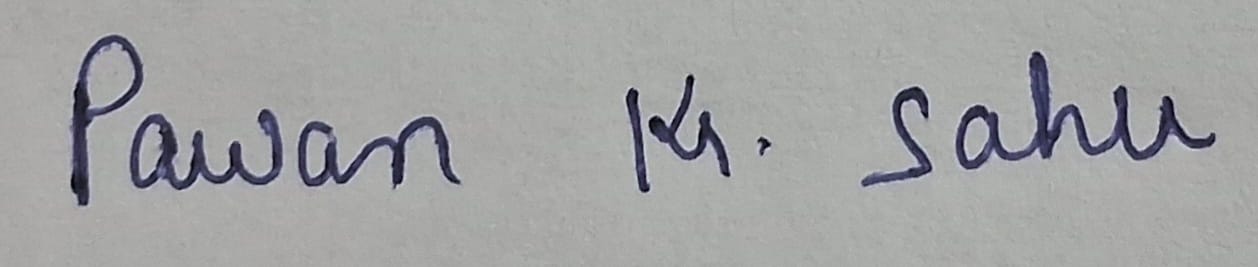 Pawan Kr. Sahu